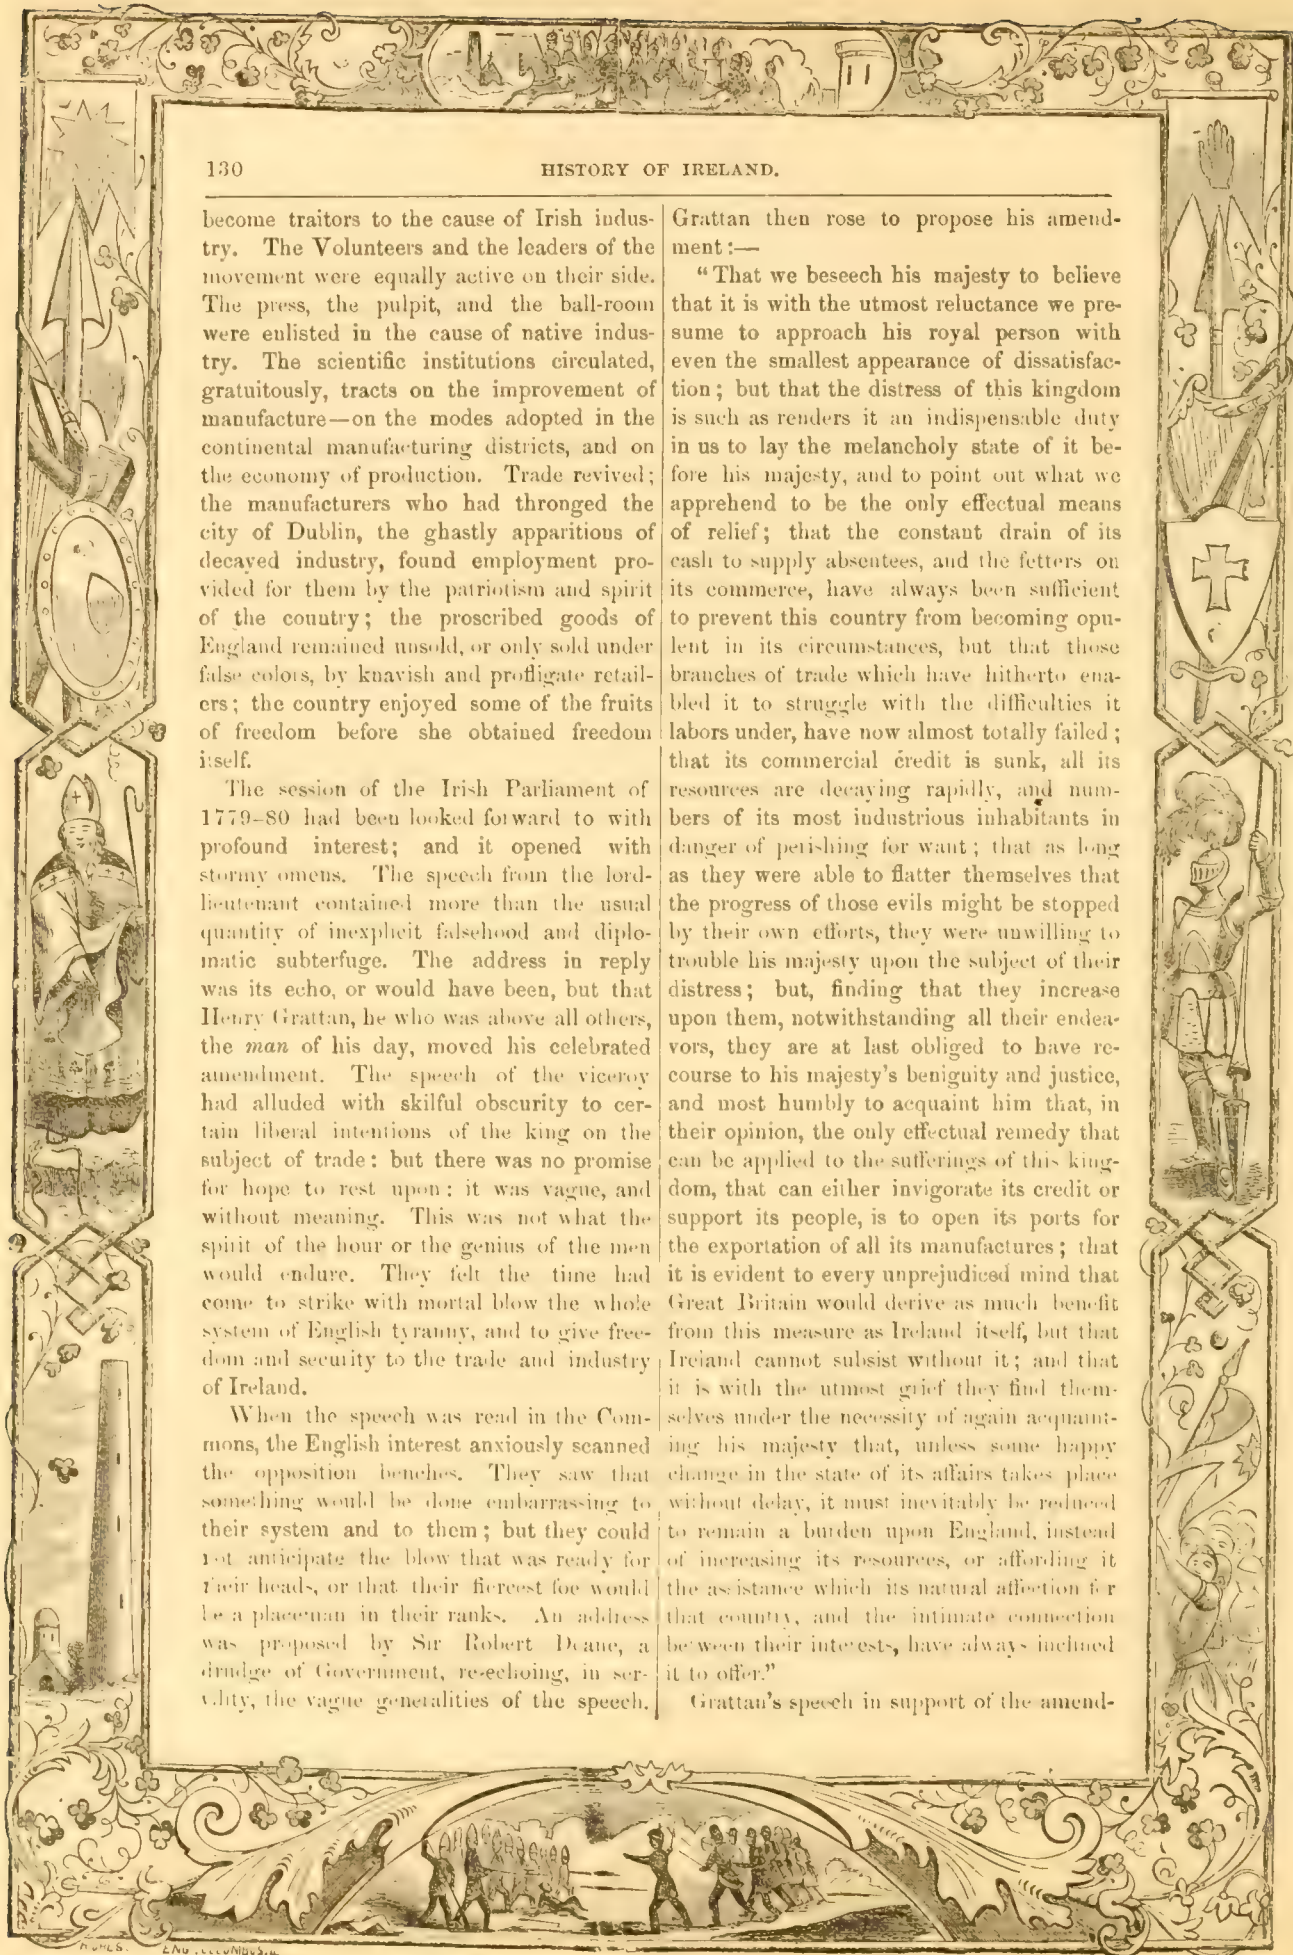 130
HISTORY OF IRELAND.
become traitors to the cause of Irish indus-
try. The Volunteers and the leaders of the
movement were equally active on their side.
The press, the pulpit, and the ball-room
were enlisted in the cause of native indus-
try. The scientific institutions circulated,
gratuitously, tracts on the improvement of
manufacture—on the modes adopted in the
continental manufacturing districts, and on
the economy of production. Trade revived;
the manufacturers who had thronged the
city of Dublin, the ghastly apparitions of
decayed industry, found employment pro-
vided for them by the patriotism and spirit
of the country; the proscribed goods of
England remained unsold, or only sold under
false colors, by knavish and profligate retail-
ers; the country enjoyed some of the fruits
of freedom before she obtained freedom
itself.
The session of the Irish Parliament of
1779–80 had been looked forward to with
profound interest; and it opened with
stormy omens. The speech from the lord-
lieutenant contained more than the usual
quantity of inexplicit falsehood and diplo-
matic subterfuge. The address in reply
was its echo, or would have been, but that
Henry Grattan, he who was above all others,
the man of his day, moved his celebrated
amendment. The speech of the viceroy
had alluded with skilful obscurity to cer-
tain liberal intentions of the king on the
subject of trade: but there was no promise
for hope to rest upon: it was vague, and
without meaning. This was not what the
spirit of the hour or the genius of the men
would endure. They felt the time had
come to strike with mortal blow the whole
system of English tyranny, and to give free-
dom and security to the trade and industry
of Ireland.
When the speech was read in the Com-
mons, the English interest anxiously scanned
the opposition benches. They saw that
something would be done embarrassing to
their system and to them; but they could
not anticipate the blow that was ready for
their heads, or that their fiercest foe would
be a placeman in their ranks. An address
was proposed by Sir Robert Deane, a
drudge of Government, re-echoing, in ser-
vility, the vague generalities of the speech.
Grattan then rose to propose his amend-
ment:—
"That we beseech his majesty to believe
that it is with the utmost reluctance we pre-
sume to approach his royal person with
even the smallest appearance of dissatisfac-
tion; but that the distress of this kingdom
is such as renders it an indispensable duty
in us to lay the melancholy state of it be-
fore his majesty, and to point out what we
apprehend to be the only effectual means
of relief; that the constant drain of its
cash to supply absentees, and the fetters on
its commerce, have always been sufficient
to prevent this country from becoming opu-
lent in its circumstances, but that those
branches of trade which have hitherto ena-
bled it to struggle with the difficulties it
labors under, have now almost totally failed;
that its commercial credit is sunk, all its
resources are decaying rapidly, and num-
bers of its most industrious inhabitants in
danger of perishing for want; that as long
as they were able to flatter themselves that
the progress of those evils might be stopped
by their own efforts, they were unwilling to
trouble his majesty upon the subject of their
distress; but, finding that they increase
upon them, notwithstanding all their endea-
vors, they are at last obliged to have re-
course to his majesty's benignity and justice,
and most humbly to acquaint him that, in
their opinion, the only effectual remedy that
can be applied to the sufferings of this king-
dom, that can either invigorate its credit or
support its people, is to open its ports for
the exportation of all its manufactures; that
it is evident to every unprejudiced mind that
Great Britain would derive as much benefit
from this measure as Ireland itself, but that
Ireland cannot subsist without it; and that
it is with the utmost grief they find them-
selves under the necessity of again acquaint-
ing his majesty that, unless some happy
change in the state of its affairs takes place
without delay, it must inevitably be reduced
to remain a burden upon England, instead
of increasing its resources, or affording it
the assistance which its natural affection for
that country, and the intimate connection
between their interests, have always inclined
it to offer."
Grattan's speech in support of the amend-